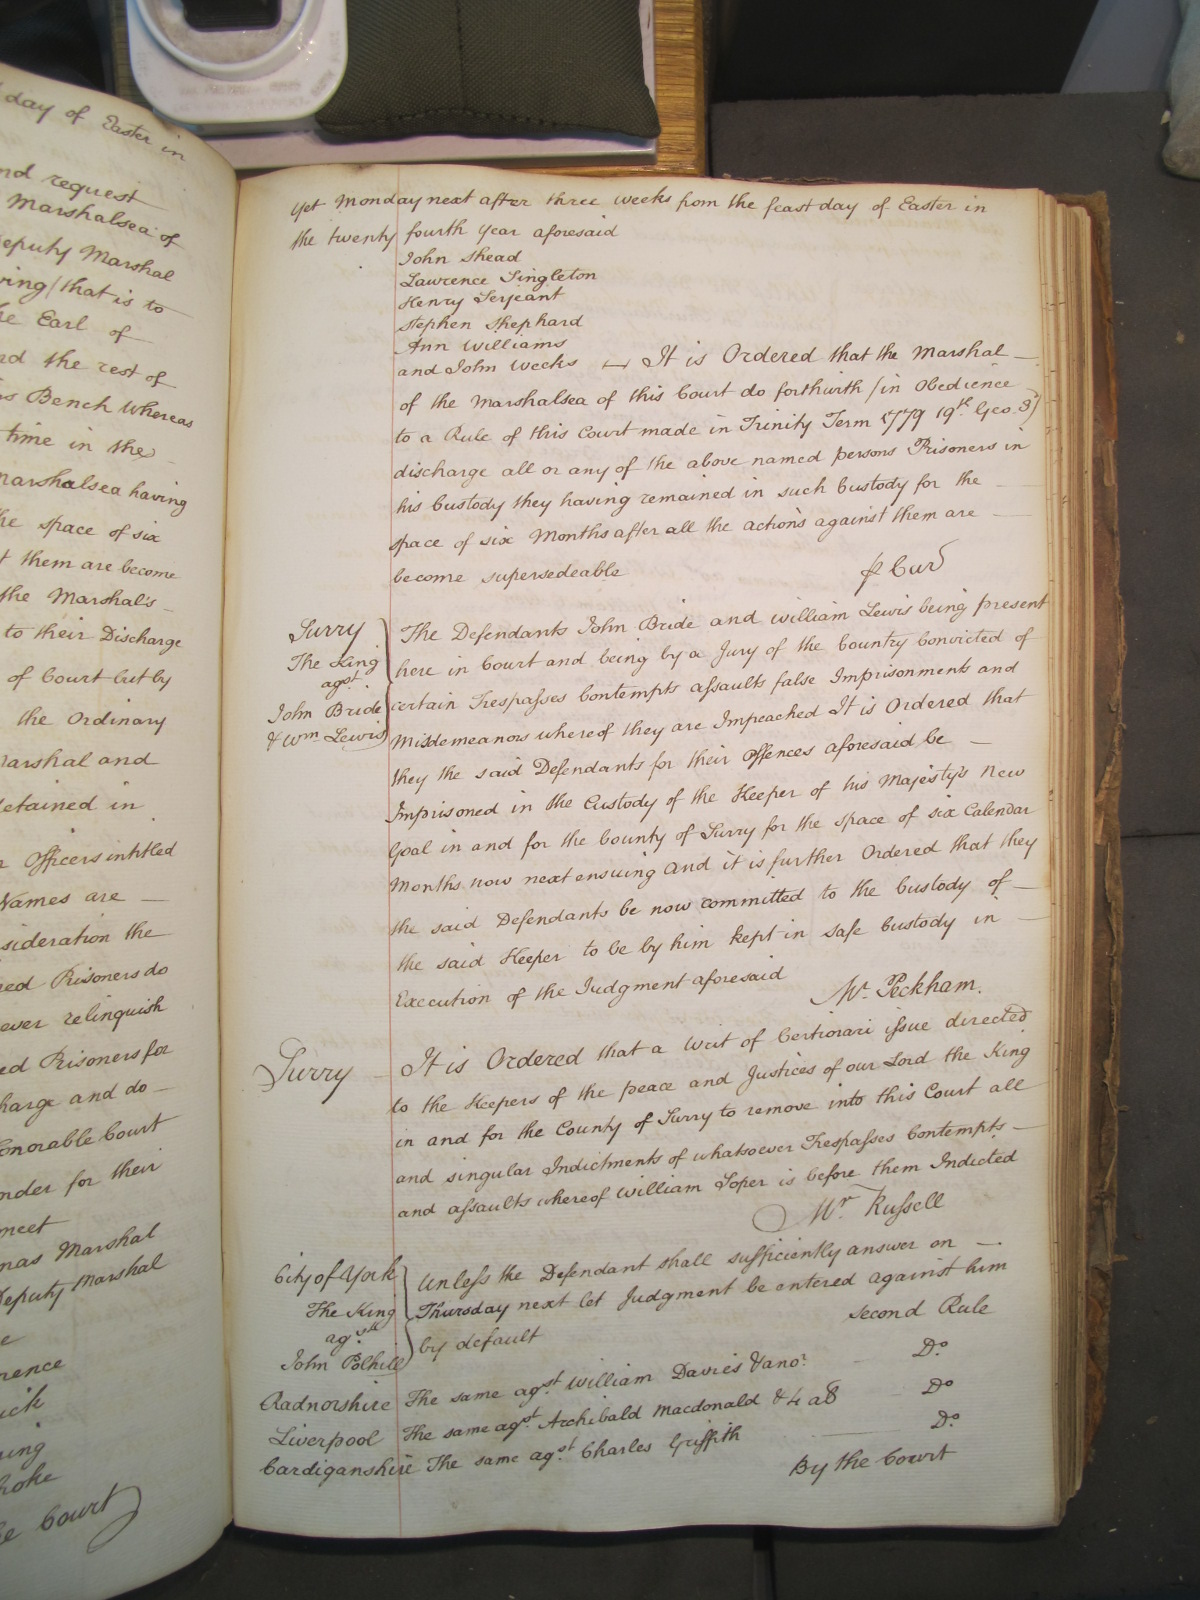 day of Easter in
nd request
Marshalsea of
eputy Marshal
ring / that is to
he Earl of
nd the rest of
s Bench Whereas
time in the
Marshalsea having
he space of six
t them are become
the Marshal's
to their Discharge
of Court but by
the Ordinary
Marshal and
etained in
r Officers intitled
Names are
sideration the
ed Prisoners do
ever relinquish
ed Prisoners for
harge and do
onorable Court
nder for their
meet
mas Marshal
Deputy Marshal
e
rence
ick
ing
hoke
e Court
Yet Monday next after three weeks from the feast day of Easter in
the twenty fourth year aforesaid
John Shead
Lawrence Singleton
Henry Serjeant
Stephen Shephard
Ann Williams
and John Weeks It is Ordered that the Marshal
of the Marshalsea of this Court do forthwith /in Obedience
to a Rule of this Court made in Trinity Term 1779 19th Geo. 3)
discharge all or any of the above named persons Prisoners in
his Custody they having remained in such Custody for the
space of six Months after all the actions against them are
become supersedeable
p Cur
Surry
The King
agst
John Bride
& Wm. Lewis
The Defendants John Bride and William Lewis being present
here in Court and being by a Jury of the Country Convicted of
certain Trespasses Contempts assaults false Imprisonments and
Misdemeanors whereof they are Impeached It is Ordered that
they the said Defendants for their Offences aforesaid be
Imprisoned in the Custody of the Keeper of his Majesty's New
Goal in and for the County of Surry for the space of six Calendar
Months now next ensuing and it is further Ordered that they
the said Defendants be now committed to the Custody of
the said Keeper to be by him kept in safe Custody in
Execution of the Judgment aforesaid
Mr. Peckham.
Surry
It is Ordered that a Writ of Certiorari issue directed
to the Keepers of the peace and Justices of our Lord the King
in and for the County of Surry to remove into this Court all
and singular Indictments of whatsoever Trespasses Contempts
and assaults whereof William Soper is before them Indicted
Mr. Russell
City of York
The King
agst
John Polhill
Unless the Defendant shall sufficiently answer on
Thursday next let Judgment be entered against him
by default
Second Rule
Radnorshire The same agst. William Davies & anor. Do.
Liverpool The same agst. Archibald Macdonald & 4 Do
Cardiganshire The same agst. Charles Griffith Do.
By the Court